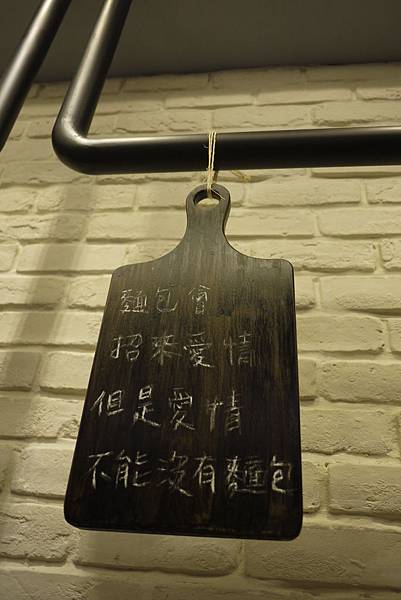 麵包會
招來愛情
但是愛情
不能沒有麵包